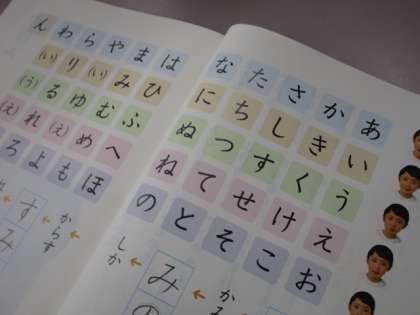 あいうえお
かきくけこ
さしすせそ
たちつてと
なにぬねの
はひふへほ
まみむめも
や(い)ゆ(え)よ
らりるれろ
わ(い)(う)(え)
ん
み
しか
からす
す
み